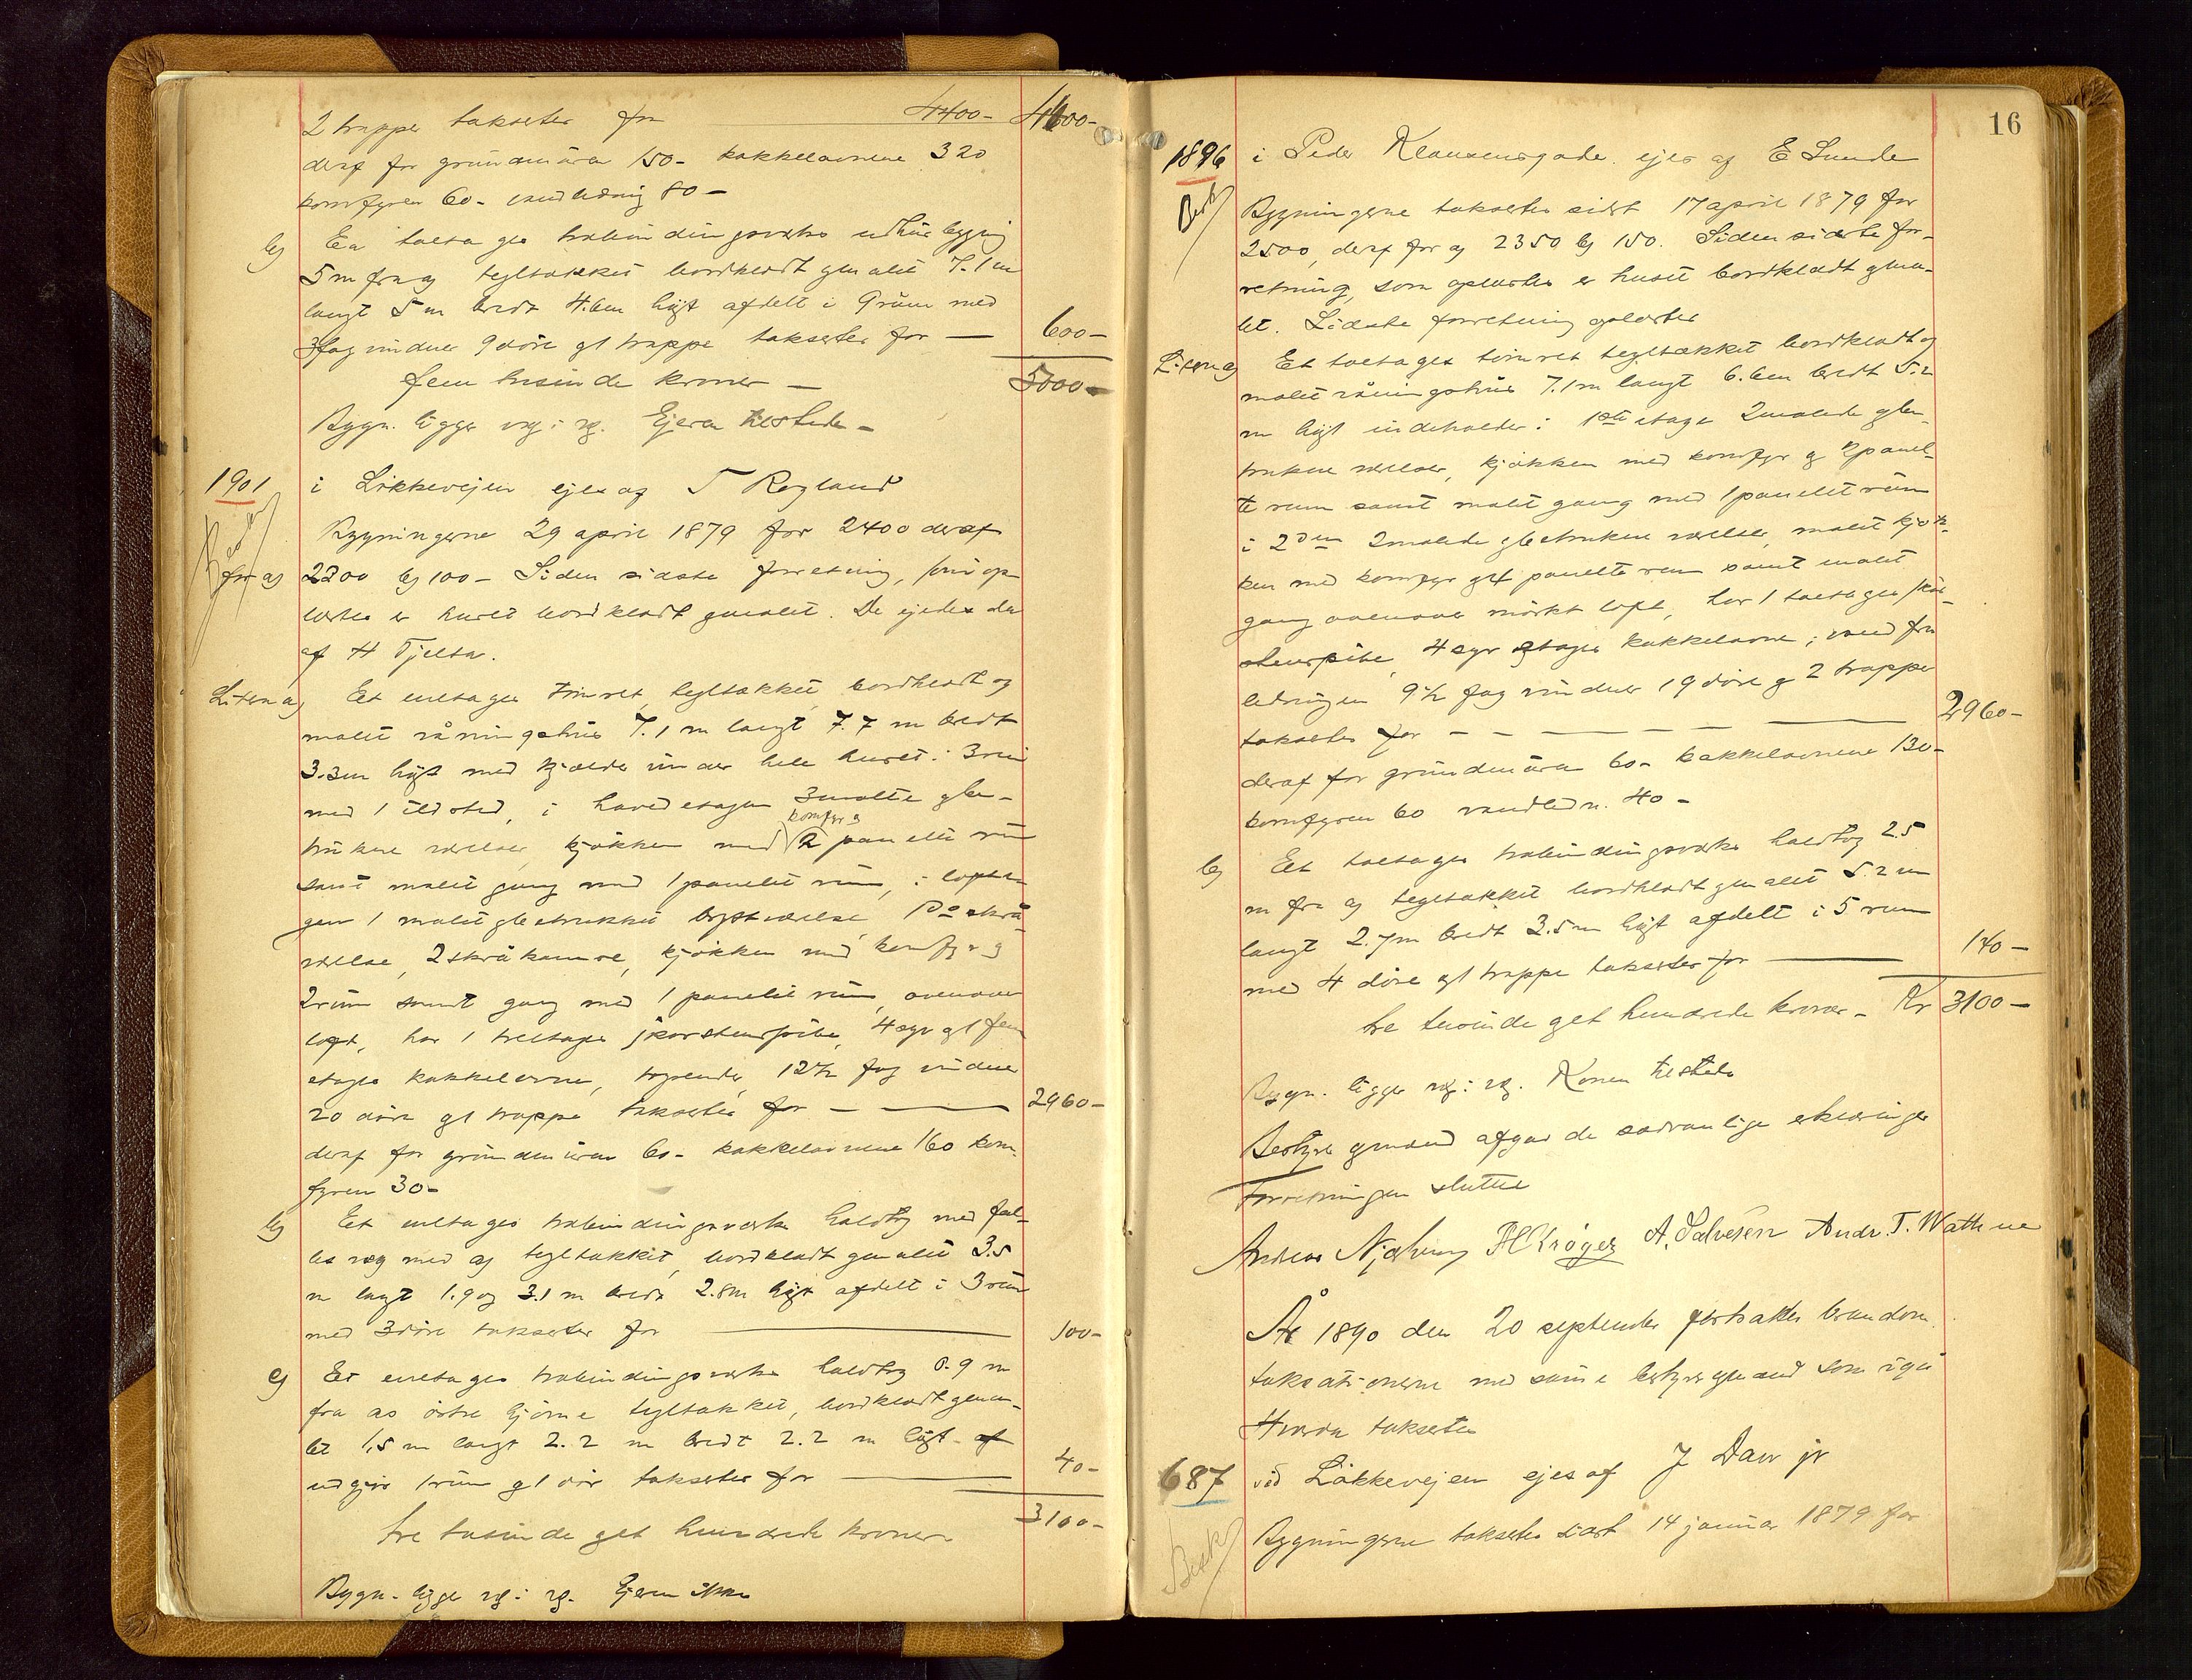 2 trapper takserter for 4400- 4400-
deraf for grundmuren 150- kakkelovnene 320
komfyren 60- vandledning 80-
b) En toetages trebindingsverks udhusbygning
5 m fra a) tegltækket bordklædt & malet 7.1 m
langt 5 m bredt 4.6 m høgt afdelt i 9 rum med
3 fag vinduer 9 døre & 1 trappe takserter for — 600-
fem tusinde kroner — 5000-
Bygn. ligger vg: vg. Ejeren tilstede -
1901 i Løkkevejen ejes af T Rogland
Bygningerne 29 april 1879 for 2400 deraf
for a) 2200 b) 100- Siden sidste forretning, som op-
læstes er huset bordklædt & malet. De ejedes da
af H Tjelta.
Litera a) Et enetages tømret, tegltækket, bordklædt og
malet våningshus 7.1 m langt 7.7 m bredt
3.3 m høgt med kjælder under hele huset: 3 rum
med 1 ildsted, i hovedetagen 3 malte & be-
trukne værelser, kjøkken med komfyr & 2 panelte rum
samt malet gang med 1 panelet rum, i lofteta-
gen 1 malet & betrukket kvistværelse, 1 do skrå-
værelse, 2 skråkamre, kjøkken med komfyr og
2 rum samt gang med 1 panelet rum, ovenover
loft, har 1 treetages skorstenspibe, 4 syv & 1 fem
etages kakkelovne, 12½ fag vinduer
20 døre & 1 trappe takserter for — 2960-
deraf for grundmuren 60- kakkelovnene 160 kom-
fyren 30-
b) Et enetages trebindingsverks halvtag med fæl-
les væg med a) tegltækket, bordklædt & malet 3.5
m langt 1.9 og 3.1 m bredt 2.8 m høgt afdelt i 3 rum
med 3 døre takserter for 100-
c) Et enetages trebindingsverks halvtag 0.9 m
fra a)s østre hjørne tegltækket, bordklædt & ma-
let 1.5 m langt 2.2 m bredt 2.2 m høgt af
udgjør 1 rum & 1 dør takserter for 40-
tre tusinde & et hundrede kroner 3100-
Bygn. ligger vg: vg. Ejeren ikke
16
1896 i Peder Klausensgade. ejes af E Lunde
Besk
Bygningerne takserter sidst 17 april 1879 for
2500, deraf for a) 2350 b) 150. Siden sidste for-
retning, som oplæstes er huset bordklædt & ma-
let. Sidste forretning oplæstes
Litera a) Et toetages tømret tegltækket bordklædt og
malet våningshus 7.1 m langt 6.6 m bredt 5.2
m høgt indeholder i 1ste etage 2 malede & be-
trukne værelser, kjøkken med komfyr & 2 panel-
te rum samt malet gang med 1 panelet rum
i 2den 2 malede & betrukne værelser, malet kjøk-
ken med komfyr & 1 panelte rum samt malet
gang ovenover mørkt loft, har 1 toetages skor-
stenspibe, 4 syv etages kakkelovne; vand fra
ledningen 9½ fag vinduer 19 døre & 2 trapper
takserter for — 2960-
deraf for grundmuren 60- kakkelovnene 130-
komfyren 60 vandledn. 40-
b) Et toetages trebindingsverks halvtag 2.5
m fra a) tegltækket bordklædt & malet 5.2 m
langt 2.7 m bredt 3.5 m høgt afdelt i 5 rum
med 4 døre & 1 trappe takserter for — 140-
tre tusinde & et hundrede kroner - Kr 3100-
Bygn. ligger vg: vg. Konen tilstede
Bestyrer & mænd afgav de sædvanlige erklæringer
Forretningen sluttet
Andreas Njølsvig H Krøger A. Salvesen Andr. T. Wathne
År 1890 den 20 september fortsattes brandom-
taksationerne med samme bestyrer & mænd som igår
Hvorda takserter
687 ved Løkkevejen ejes af J Daw jr
Besk
Bygningerne takserter sidst 14 januar 1879 for